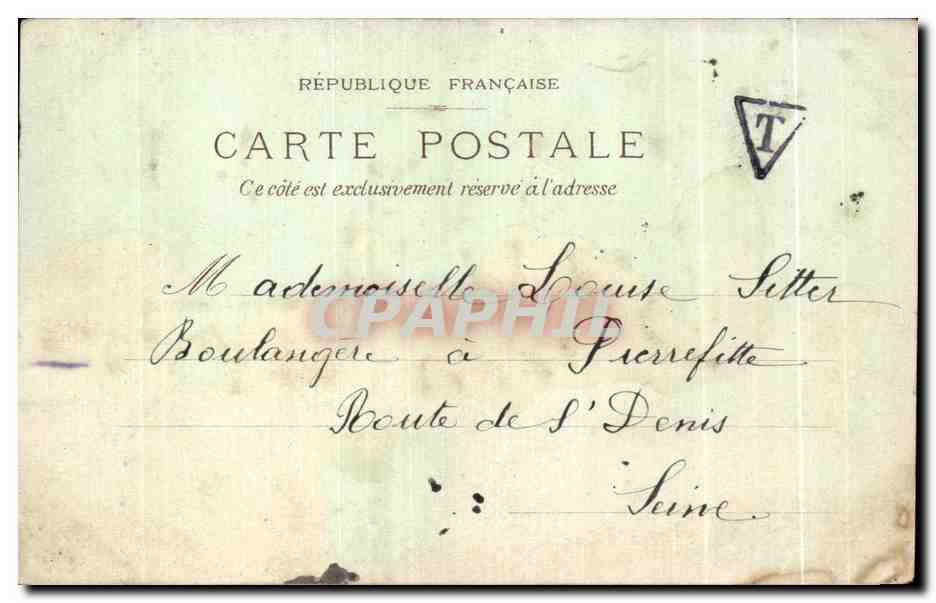 RÉPUBLIQUE FRANÇAISE
CARTE POSTALE
Ce côté est exclusivement réservé à l'adresse
T
Mademoiselle Louise Sitter
CPAPHIL
Boulangère à Pierrefitte
Route de S' Denis
Seine